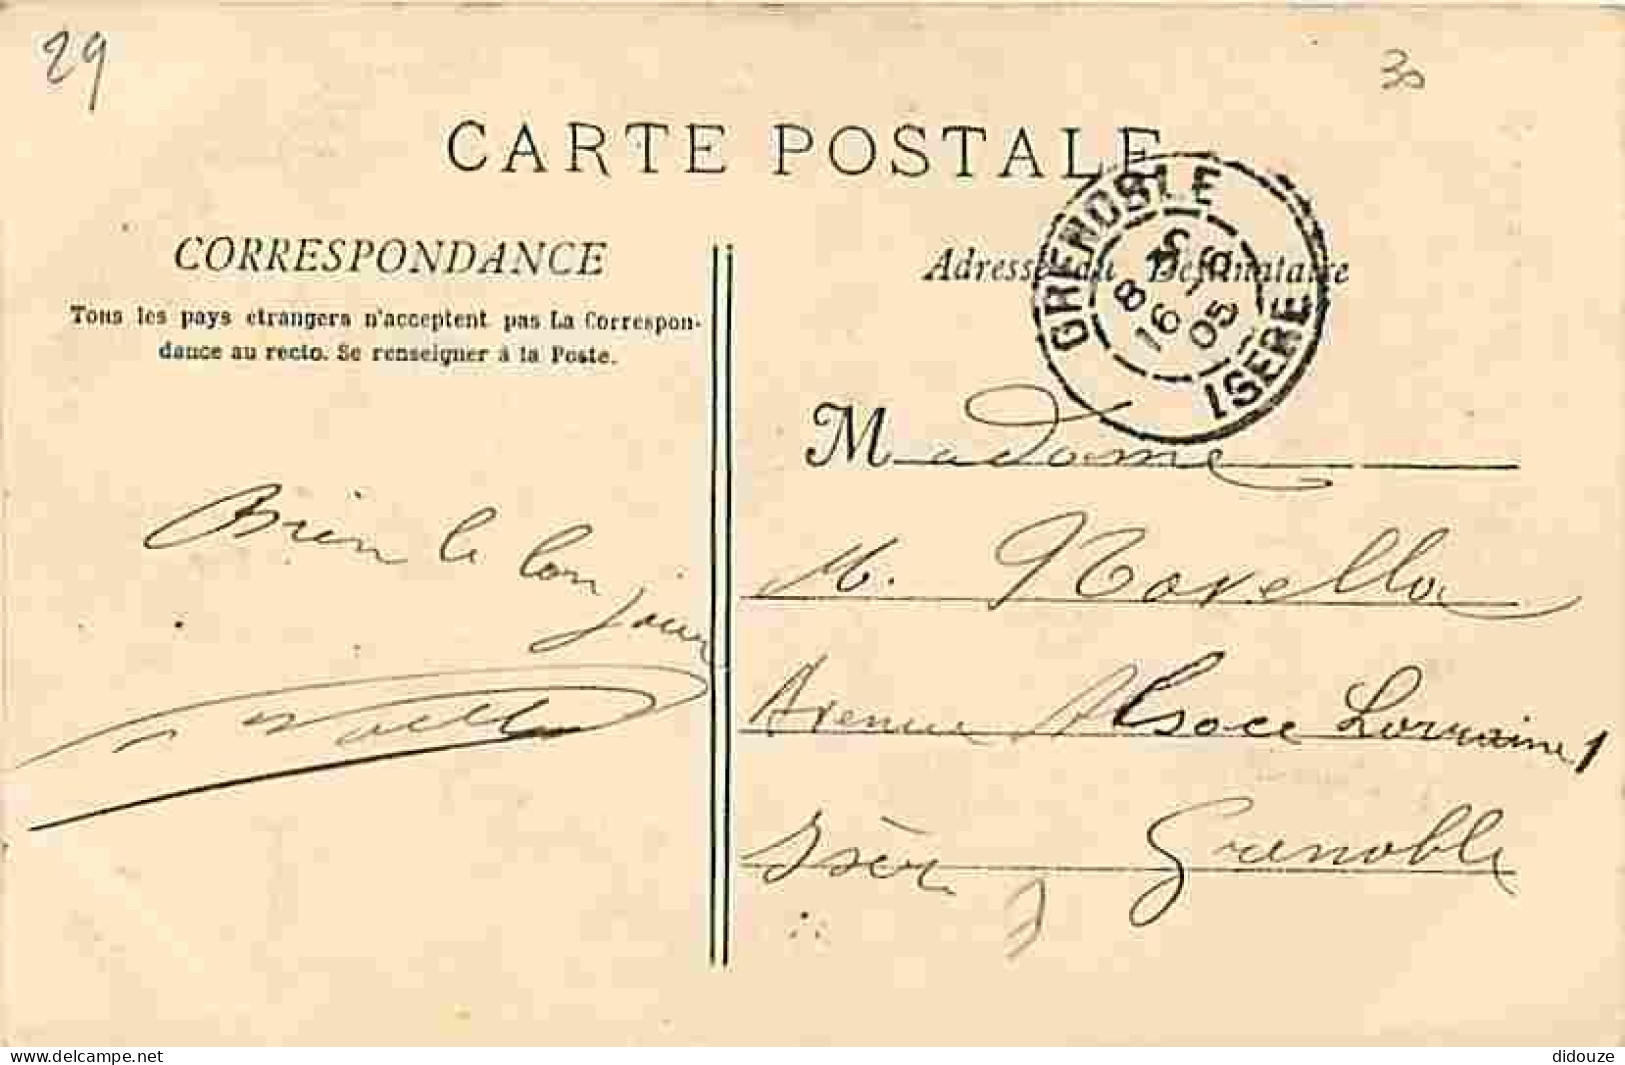 29
30
CARTE POSTALE
GRENOBLE
ISERE
8
16
05
CORRESPONDANCE
Adresse du Destinataire
Tous les pays etrangers n'acceptent pas La Correspon-
dance au recto. Se renseigner à la Poste.
Madame
M. Novella
Avenue Alsace Lorraine 1
Isère Grenoble
Bien le bon
jour
www.delcampe.net
didouze